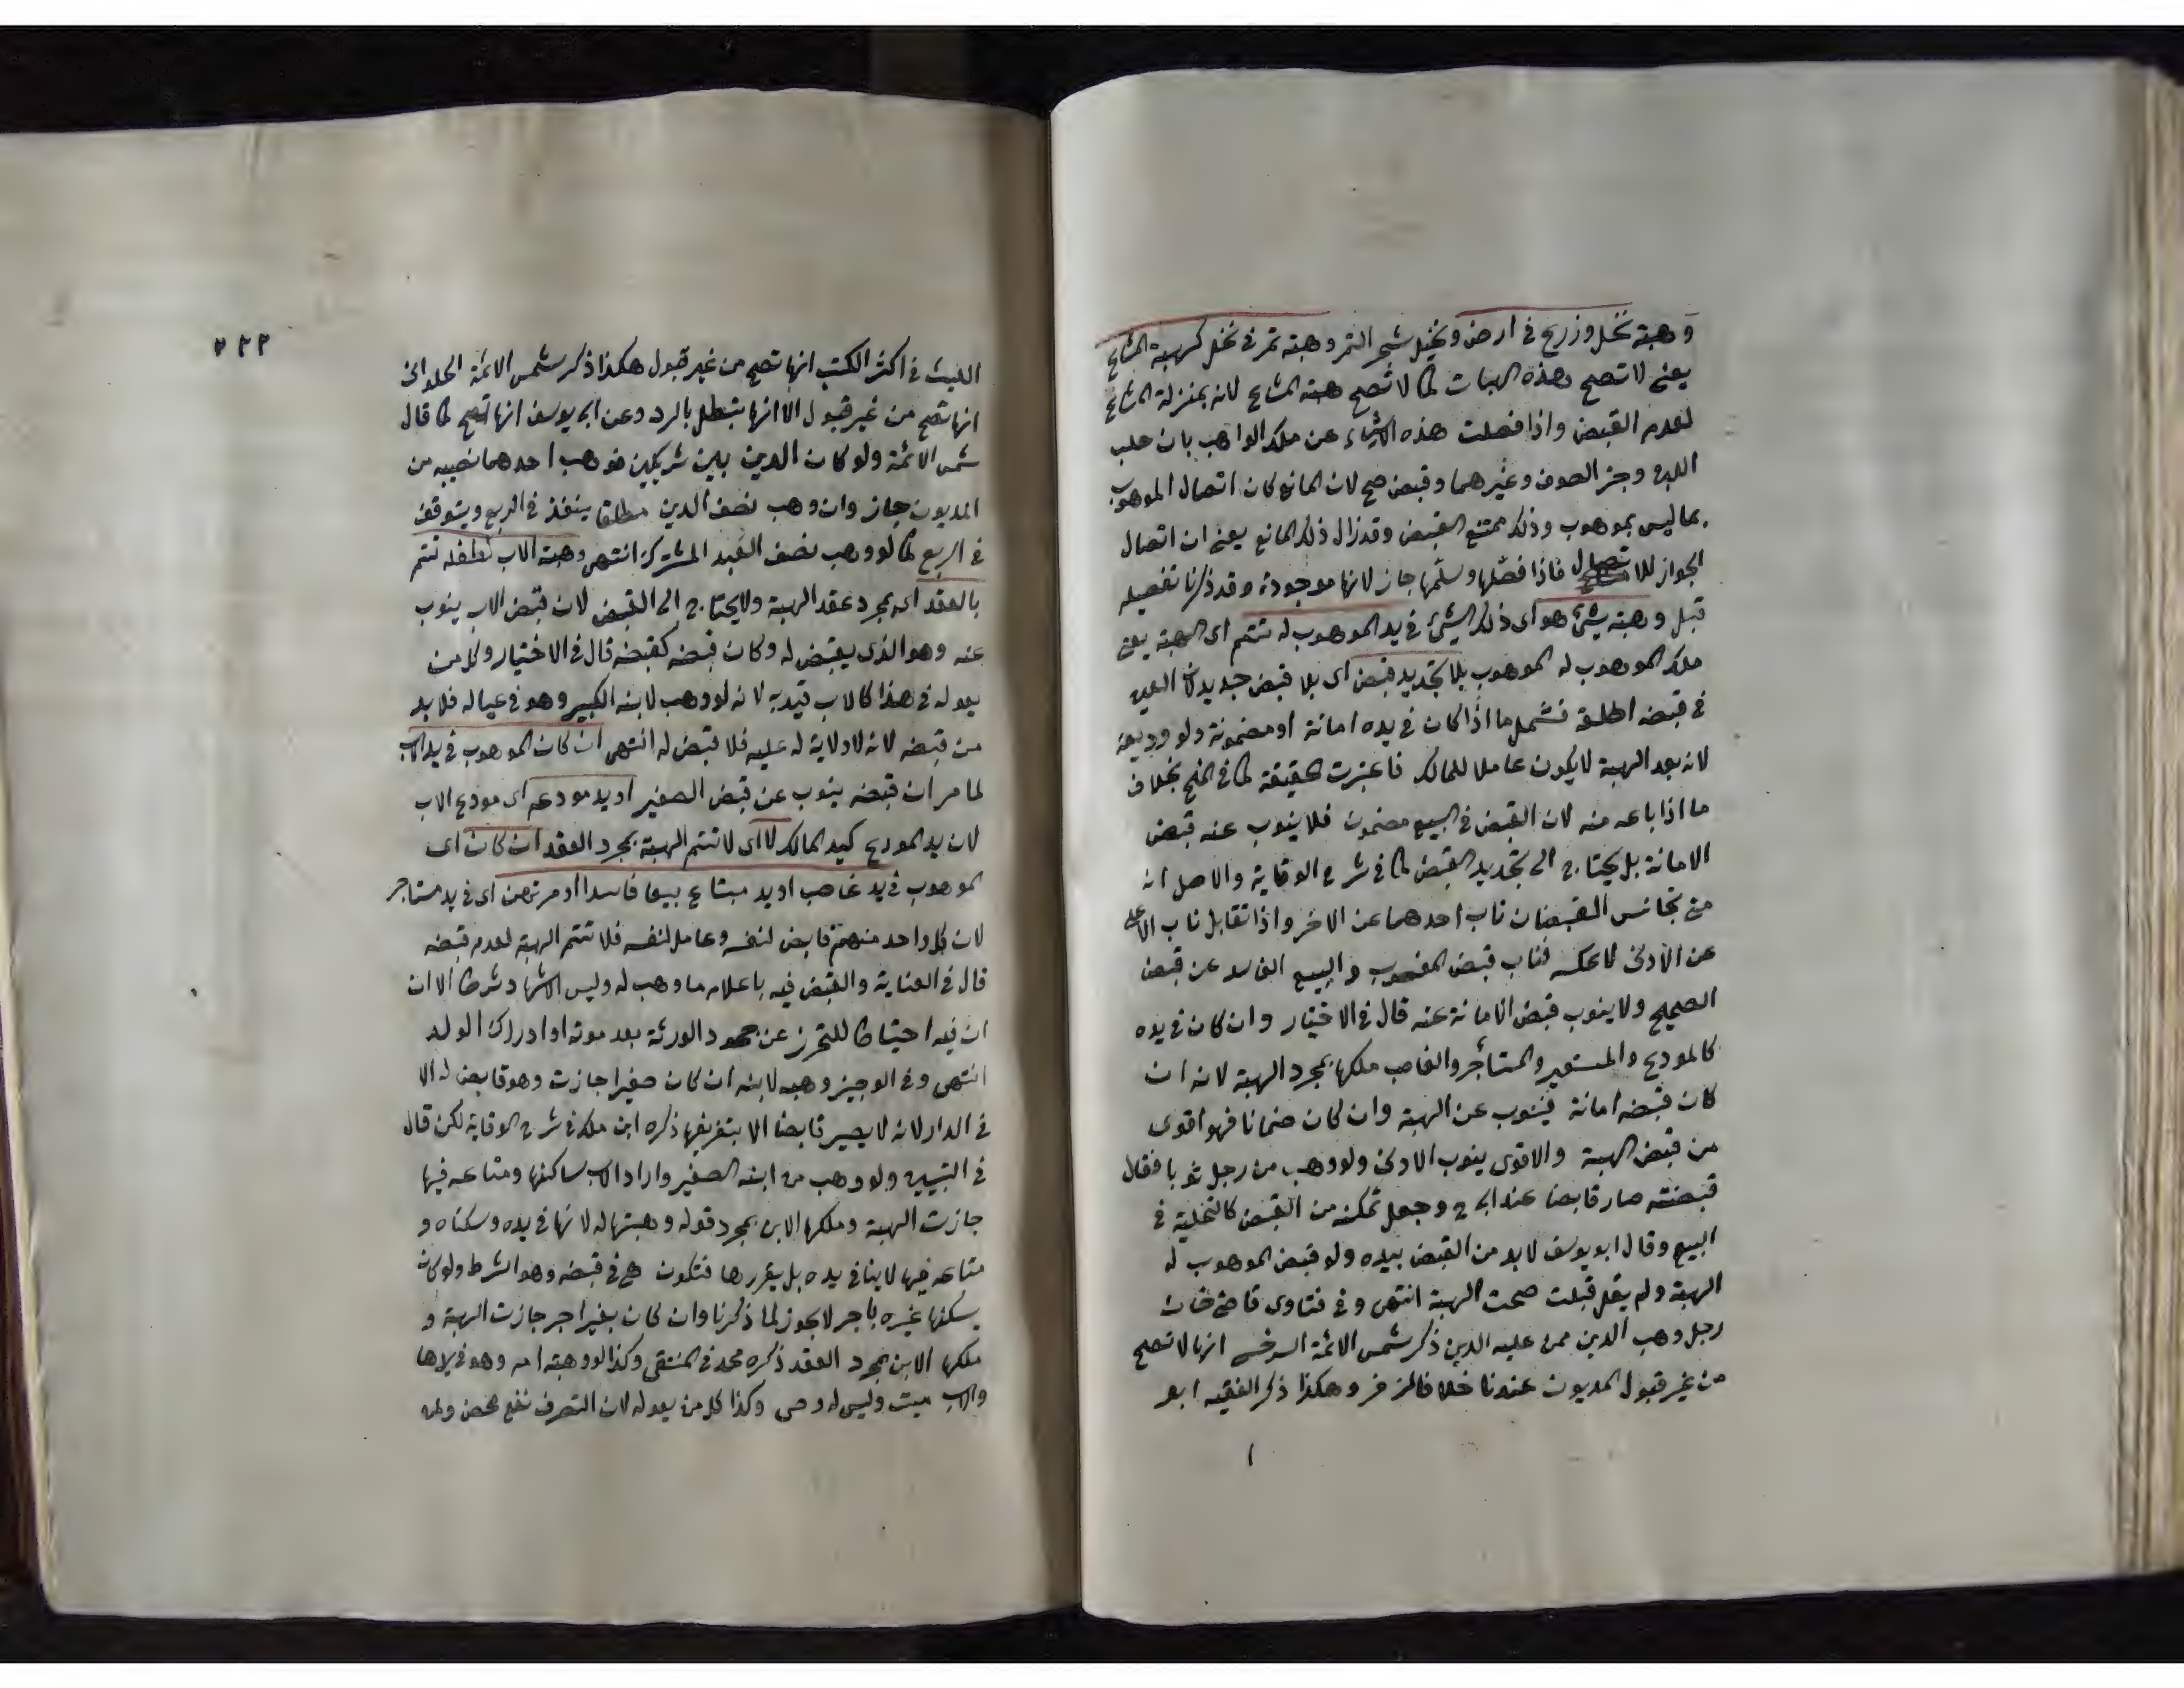 وهبته نخل وزرع في ارض ونخيل شجر التمر وهبته تمر في نخل كهبة المشاع
يعني لا تصح هذه الهبات كما لا تصح هبته المشاع لانه بمنزلة المشاع
لعدم القبض واذا فصلت هذه الاشياء عن ملك الواهب بان حلب
اللبن وجز الصوف وغيرهما وقبض صح لان المانع كان اتصال الموهوب
بما ليس بموهوب وذلك ممتنع القبض وقد زال ذلك المانع يعني ان اتصال
الجواز للاتصال فاذا فصلها وسلمها جاز لانها موجودة وقد ذكرنا تفصيله
قبل وهبته شئ هو اي ذلك الشئ في يد الموهوب له تتم اي الهبة يعني
ملك الموهوب له الموهوب بلا تجديد قبض اي بلا قبض جديد لان العين
في قبضه اطلقه فشمل ما اذا كان في يده امانة او مضمونة ولو وديعة
لانه بعد الهبة لا يكون عاملا للمالك فاعتبرت حقيقة كما في المنح بخلاف
ما اذا باعه منه لان القبض في البيع مضمون فلا ينوب عنه قبض
الامانة بل يحتاج الى تجديد القبض كما في شرح الوقاية والاصل انه
متى تجانس القبضان ناب احدهما عن الاخر واذا تقابل ناب الاعلى
عن الادنى لا عكسه فناب قبض المغصوب والبيع الفاسد عن قبض
الصحيح ولا ينوب قبض الامانة عنه قال في الاختيار وان كان في يده
كالمودع والمستعير والمستأجر والغاصب ملكها بمجرد الهبة لانه ان
كان قبضه امانة فينوب عن الهبة وان كان ضمانا فهو اقوى
من قبض الهبة والاقوى ينوب الادنى ولو وهب من رجل ثوبا فقال
قبضته صار قابضا عند ابي ح وجعل تمكنه من القبض كالتخلية في
البيع وقال ابو يوسف لا بد من القبض بيده ولو قبض الموهوب له
الهبة ولم يقل قبلت صحت الهبة انتهى وفي فتاوى قاضي خان
رجل وهب الدين ممن عليه الدين ذكر شمس الائمة السرخسي انها لا تصح
من غير قبول المديون عندنا خلافا لزفر وهكذا ذكر الفقيه ابو
٢٢٢
الليث في اكثر الكتب انها تصح من غير قبول هكذا ذكر شمس الائمة الحلواني
انها تصح من غير قبول الا انها يتبطل بالرد وعن ابي يوسف انها تصح كما قال
شمس الائمة ولو كان الدين بين شريكين فوهب احدهما نصيبه من
المديون جاز وان وهب نصف الدين مطلقا ينفذ في الربع ويتوقف
في الربع كما لو وهب نصف العبد المشترك انتهى وهبته الاب لطفله تتم
بالعقد اي بمجرد عقد الهبة ولا يحتاج الى القبض لان قبض الاب ينوب
عنه وهو الذي يقبض له وكان قبضه كقبضه قال في الاختيار وكل من
يعوله في هذا كالاب قيد به لانه لو وهب لابنه الكبير وهو في عياله فلا بد
من قبضه لانه لا ولاية له عليه فلا قبض له انتهى ان كان الموهوب في يد الاب
لما مر ان قبضه ينوب عن قبض الصغير او يد مودعه اي مودع الاب
لان يد المودع كيد المالك لا اي لا تتم الهبة بمجرد العقد ان كان اي
الموهوب في يد غاصب او يد مبتاع بيعا فاسدا او مرتهن اي في يد مستاجر
لان كل واحد منهم قابض لنفسه وعامل لنفسه فلا تتم الهبة لعدم قبضه
قال في العناية والقبض فيه باعلام ما وهب له وليس الاشهاد شرطا الا ان
ان فيه احتياطا للتحرز عن جحود الورثة بعد موته او ادراك الولد
انتهى وفي الوجيز وهب لابنه ان كان صغيرا جازت وهو قابض له الا
في الدار لانه لا يصير قابضا الا بتفريغها ذكره ابن ملك في شرح الوقاية لكن قال
في التبيين ولو وهب من ابنه الصغير وارا والاب ساكنها ومتاعه فيها
جازت الهبة وملكها الابن بمجرد قوله وهبتها له لانها في يده وسكناه و
متاعه فيها لا ينافي يده بل يقررها فتكون هي في قبضه وهو الشرط ولو كان
يسكنها غيره باجر لا يجوز لما ذكرنا وان كان بغير اجر جازت الهبة و
ملكها الابن بمجرد العقد ذكره محمد في المنتقى وكذا لو وهبته امه وهو في يدها
والاب ميت وليس له وصي وكذا كل من يعوله لان التصرف نفع محض وله